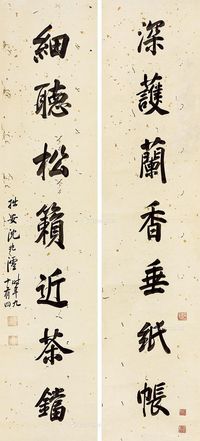 深護蘭香垂紙帳
細聽松籟近茶鐺
拙安沈兆澐
時年九
十有四